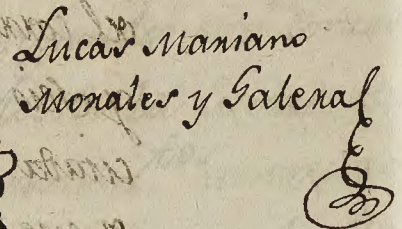 Lucas Mariano
Morales y Galera